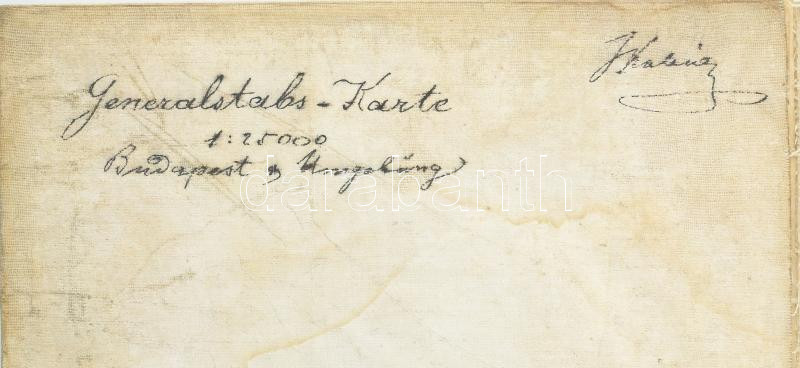 Generalstabs-Karte
1:25000
Budapest & Umgebung
darabanth